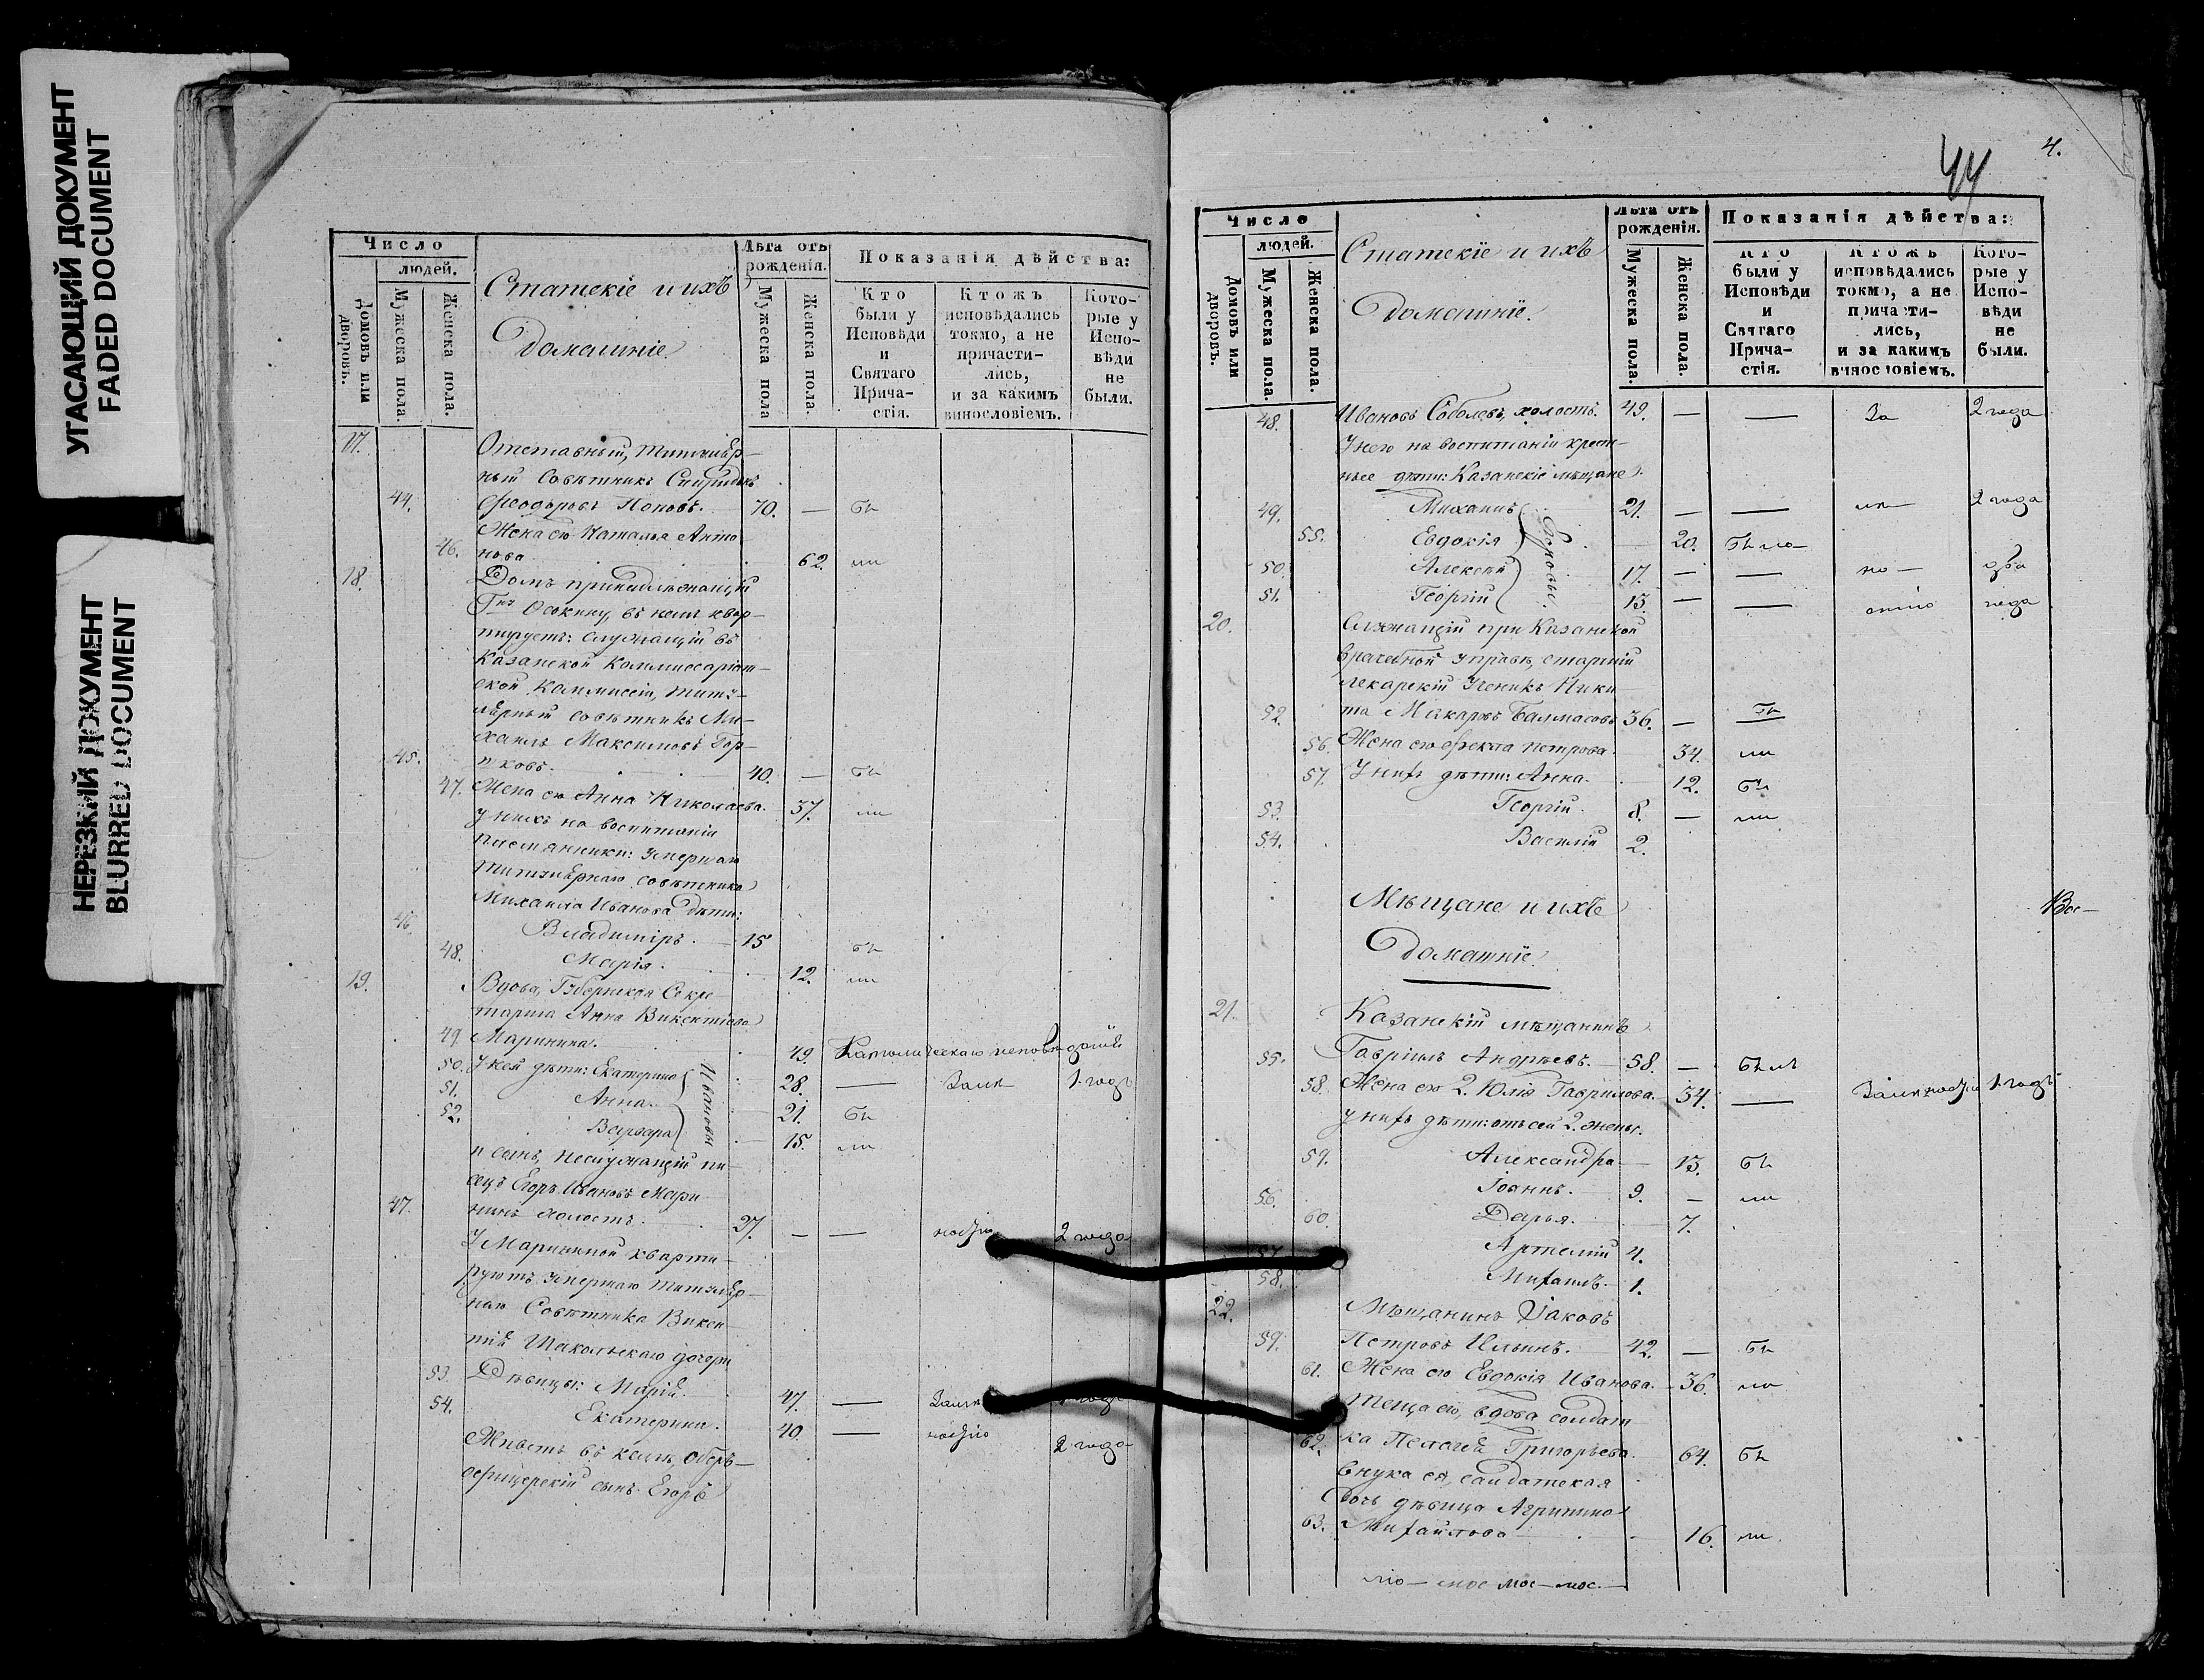 УГАСАЮЩИЙ ДОКУМЕНТ
FADED DOCUMENT
НЕРЕЗКИЙ ДОКУМЕНТ
BLURRED DOCUMENT
Число
людей.
Домовъ или дворовъ.
Мужеска пола.
Женска пола.
Статскіе и ихъ
Домашніе.
Лѣта отъ рожденія.
Мужеска пола
Женска пола.
Показанія дѣйства:
Кто были у Исповѣди и Святаго Прича-стія.
Ктожъ исповѣдались токмо, а не причасти-лись, и за какимъ винословіемъ.
Кото-рые у Испо-вѣди не были.
17. Отставный, Титуляр-
ный Совѣтникъ Спиридонъ
44. Феодоровъ Поповъ. 70. — бы
Жена его Наталья Анто
46. нова 62. ли
18. Домъ принадлежащій
Гну Осокину, въ немъ квар-
тируетъ: служащій въ
Казанской Коммиссаріат-
ской Коммиссіи, Титу-
лярный совѣтникъ Ми-
хаилъ Максимовъ Гор-
45. нковъ. 40. — бы
47. Жена его Анна Николаева. 37. ли
у нихъ на воспитаніи
племянники: умершаго
титулярнаго совѣтника
Михаила Иванова дѣти:
46. Владиміръ. 15 бы
48. Марія. 12. ли
19. Вдова, Губернская Секре-
тарша Анна Викентіева
49. Маринина. 49. Католическаго исповѣданія
50. У ней дѣти: Екатерина 28. — Запи 1. годъ
51. Анна. 21. бы
52. Варвара 15. ли
Ивановы
и сынъ, неслужащій пи-
сецъ Егоръ Ивановъ Мари
47. нинъ холостъ. 27. — — 2 года
У Марининой кварти-
руютъ умершаго титуляр-
наго Совѣтника Викен
тія дочери
53. Дѣвицы: Марія. 47. —
54. Екатерина. 40. — 2 года
Живетъ въ кельѣ, оберъ-
офицерскій сынъ Егоръ
44
4.
Число
людей.
Домовъ или дворовъ.
Мужеска пола.
Женска пола.
Статскіе и ихъ
Домашніе.
Лѣта отъ рожденія.
Мужеска пола.
Женска пола.
Показанія дѣйства:
Кто были у Исповѣди и Святаго Прича-стія.
Ктожъ исповѣдались токмо, а не причасти-лись, и за какимъ винословіемъ.
Кото-рые у Испо-вѣди не были.
48. Ивановъ Соболевъ, холостъ. 49. — — За 2 года
У него на воспитаніи крест-
ные дѣти: Казанскіе мѣщане
49. Михаилъ 21. — — 2 года
55. Евдокія 20. Была
50. Алексѣй 17. — — оба
51. Георгій 13. — — года
20. Служащій при Казанской
врачебной управѣ, старшій
лекарскій ученикъ Ники
52. та Макаровъ Балмасовъ 36. — Бы
56. Жена его Фекла Петрова. 34. ли
57. У нихъ дѣти: Анна. 12. бы
53. Георгій. 8. — ли
54. Василій 2.
Мѣщане и ихъ
Домашніе.
Вос-
21. Казанскій мѣщанинъ
55. Гавріилъ Андреевъ. 58. — Былъ
58. Жена его 2. Юлія Гаврилова. 34. — 1. годъ
у нихъ дѣти: отъ сей 2. жены.
59. Александра 13. бы
56. Іоаннъ. 9. — ли
60. Дарья. 7.
57. Артемій 4.
58. Михаилъ. 1.
22. Мѣщанинъ Іаковъ
59. Петровъ Ильинъ. 42. — бы
61. Жена его Евдокія Иванова. 36. ла
Теща его, вдова солдат
62. ка Пелагея Григорьева 64. бы
Внука ея, солдатская
дочь дѣвица Агрипина
63. Михайлова 16. ли